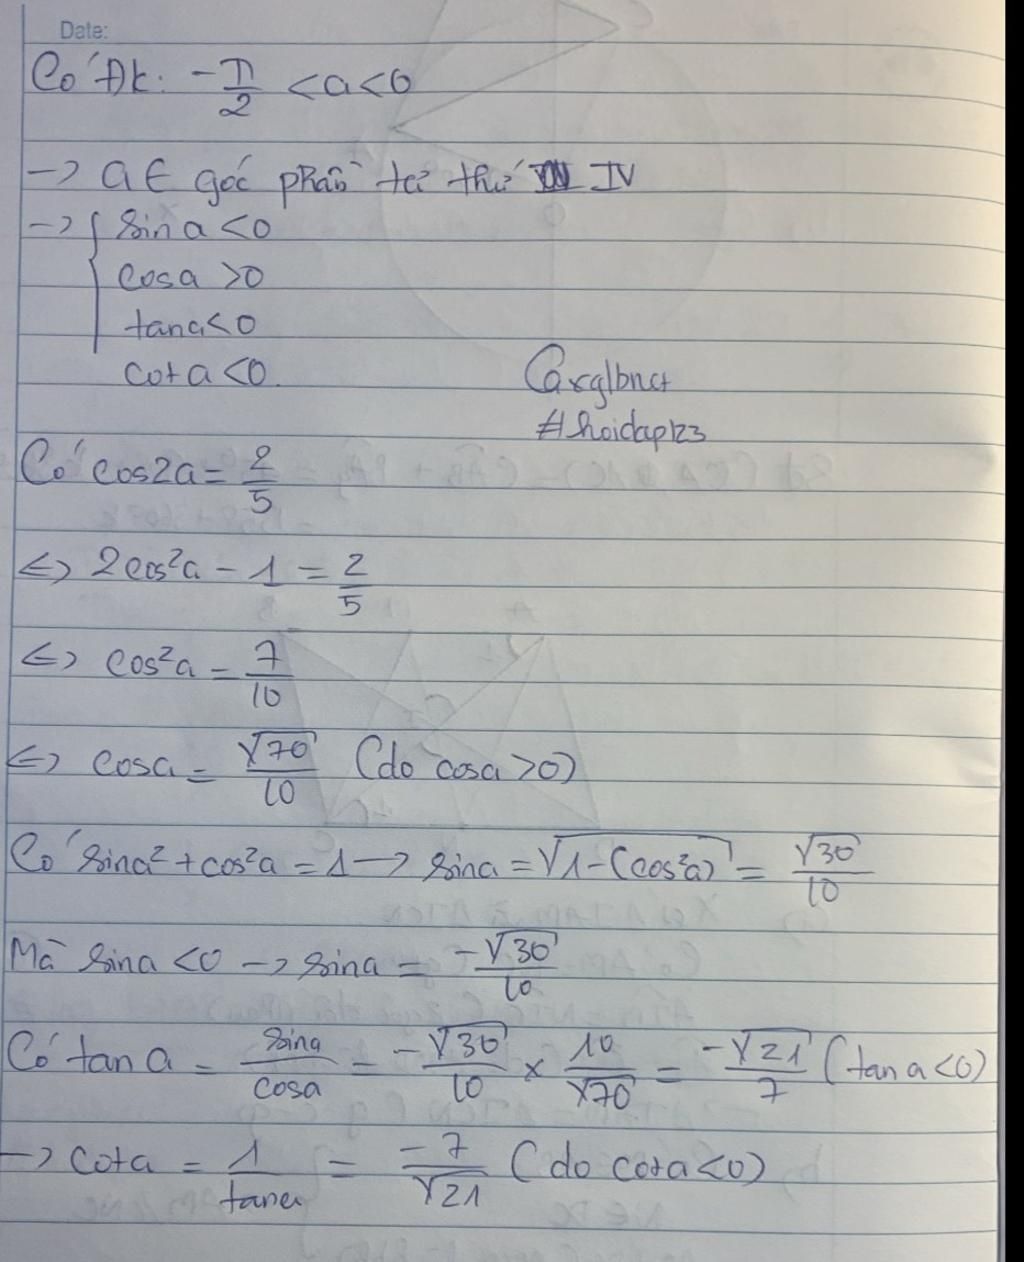 Date:
Có ĐK: -π/2 < a < 0
→ a ∈ góc phần tư thứ IV
→ { sin a < 0
cos a > 0
tan a < 0
cot a < 0.
Carglbnct
#hoidap123
Có cos2a = 2/5
⇔ 2cos²a - 1 = 2/5
⇔ cos²a = 7/10
⇔ cosa = √70/10 (do cosa > 0)
Có sina² + cos²a = 1 → sina = √(1-(cos²a)) = √30/10
Mà sina < 0 → sina = -√30/10
Có tan a = sina/cosa = -√30/10 × 10/√70 = -√21/7 (tan a < 0)
→ cota = 1/tana = -7/√21 (do cota < 0)